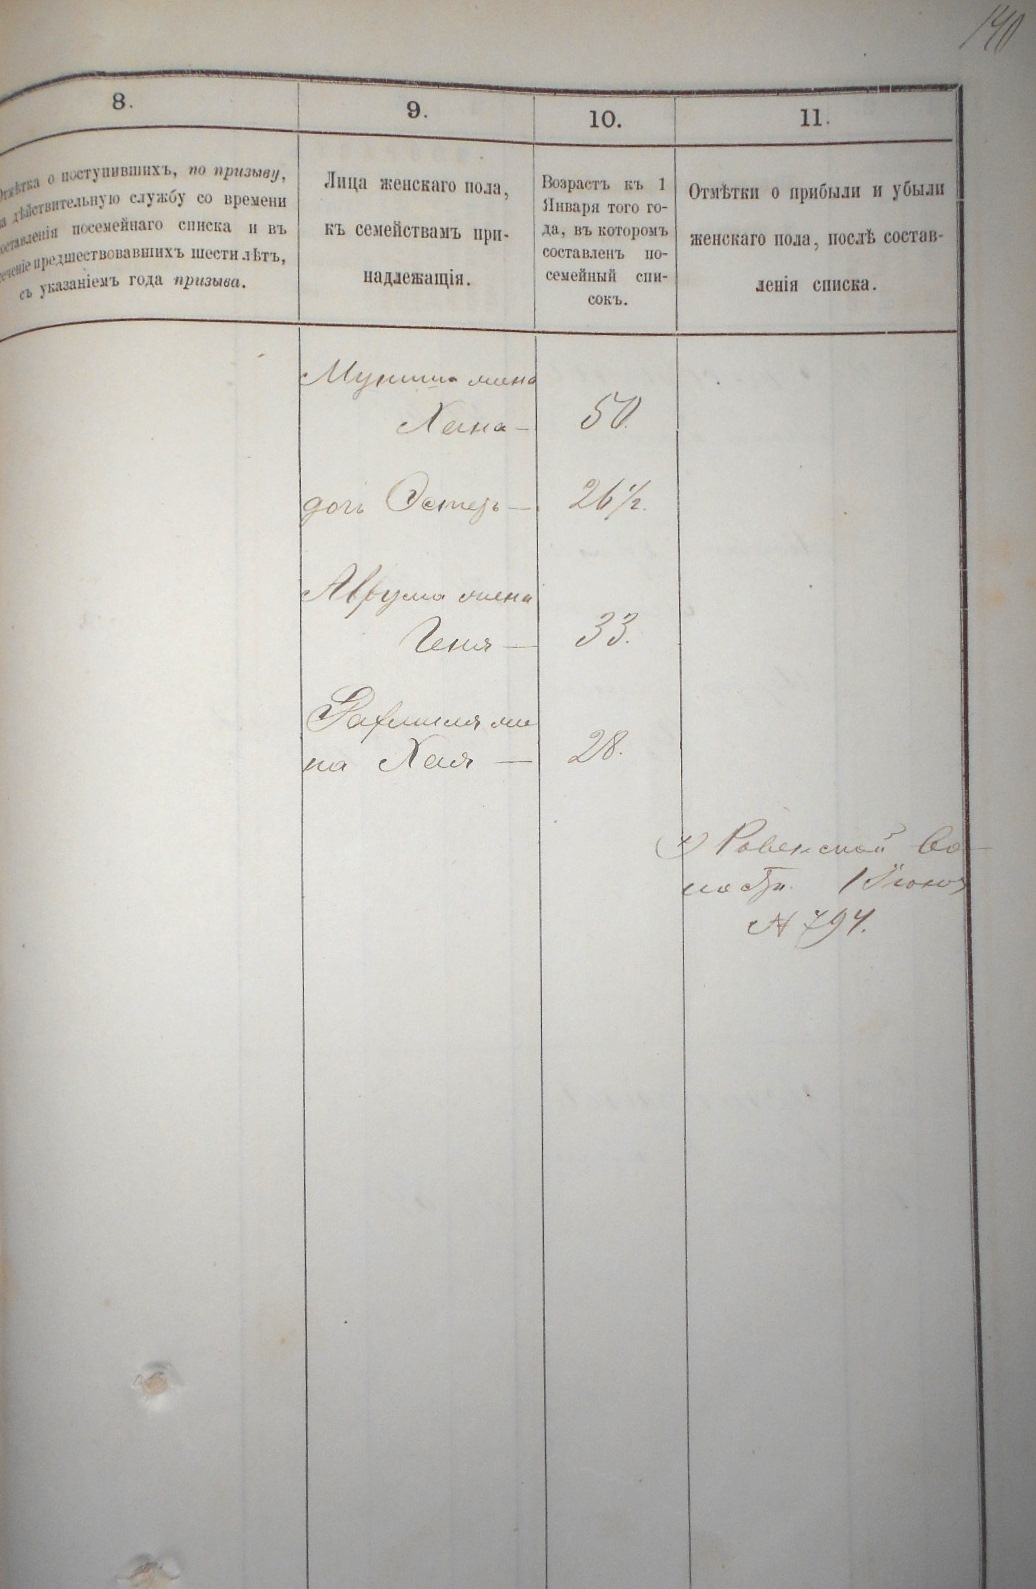 140
8.
9.
10.
11.
Отмѣтка о поступившихъ, по призыву,
на дѣйствительную службу со времени
составленія посемейнаго списка и въ
теченіе предшествовавшихъ шести лѣтъ,
съ указаніемъ года призыва.
Лица женскаго пола,
къ семействамъ при-
надлежащія.
Возрастъ къ 1
Января того го-
да, въ которомъ
составленъ по-
семейный спи-
сокъ.
Отмѣтки о прибыли и убыли
женскаго пола, послѣ состав-
ленія списка.
жена
Хана — 50.
дочь Эстеръ — 26½.
Аврума жена
Геня — 33.
же
на Хая — 28.
Ровенской
1 Іюня
№ 794.